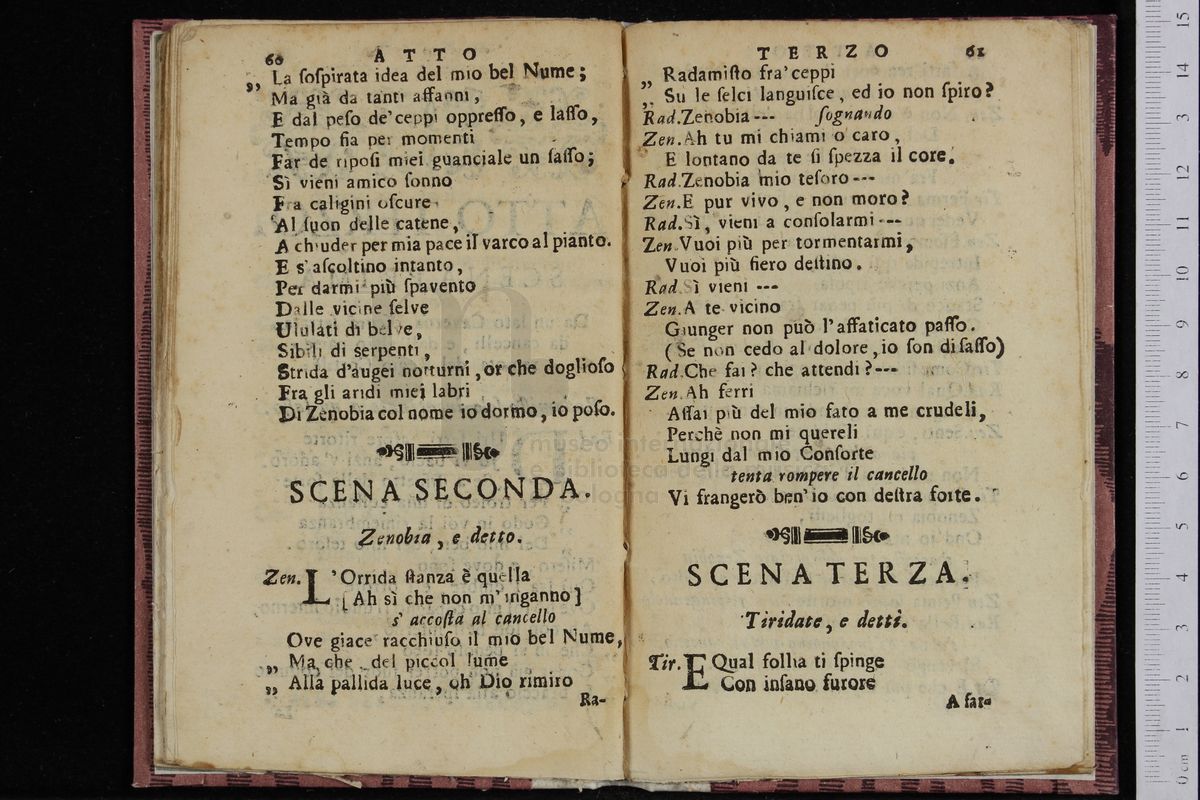 60 ATTO
„ La ſoſpirata idea del mio bel Nume;
„ Ma già da tanti affanni,
E dal peſo de'ceppi oppreſſo, e laſſo,
Tempo fia per momenti
Far de ripoſi miei guanciale un ſaſſo;
Sì vieni amico ſonno
Fra caligini oſcure
Al ſuon delle catene,
A chiuder per mia pace il varco al pianto.
E s'aſcoltino intanto,
Per darmi più ſpavento
Dalle vicine ſelve
Ululati di belve,
Sibili di serpenti,
Strida d'augei notturni, or che doglioſo
Fra gli aridi miei labri
Di Zenobia col nome io dormo, io poſo.
SCENA SECONDA.
Zenobia, e detto.
Zen. L'Orrida ſtanza è quella
[Ah sì che non m'inganno]
s' accoſta al cancello
Ove giace racchiuſo il mio bel Nume,
„ Ma che del piccol lume
„ Alla pallida luce, oh Dio rimiro
Ra-
TERZO 61
„ Radamiſto fra'ceppi
„ Su le ſelci languiſce, ed io non ſpiro?
Rad.Zenobia--- ſognando
Zen.Ah tu mi chiami o caro,
E lontano da te ſi ſpezza il core.
Rad.Zenobia mio teſoro---
Zen.E pur vivo, e non moro?
Rad.Sì, vieni a conſolarmi---
Zen.Vuoi più per tormentarmi,
Vuoi più fiero deſtino.
Rad.Sì vieni---
Zen.A te vicino
Giunger non può l'affaticato paſſo.
(Se non cedo al dolore, io ſon di ſaſſo)
Rad.Che fai? che attendi?---
Zen.Ah ferri
Aſſai più del mio fato a me crudeli,
Perchè non mi quereli
Lungi dal mio Conſorte
tenta rompere il cancello
Vi frangerò ben'io con deſtra forte.
SCENA TERZA.
Tiridate, e detti.
Tir. E Qual follia ti ſpinge
Con inſano furore
A far-
museo internazionale
e biblioteca della
0 cm 1 2 3 4 5 6 7 8 9 10 11 12 13 14 15